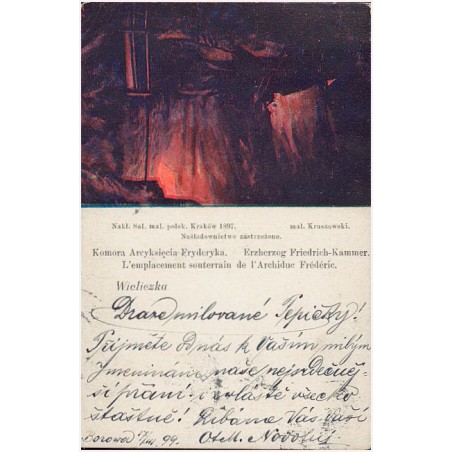 Nakł. Sal. mal. polsk. Kraków 1897. mal. Kruszewski.
Nakładownictwo zastrzeżone.
Komora Arcyksięcia Fryderyka. Erzherzog Friedrich-Kammer.
L'emplacement souterrain de l'Archiduc Frédéric.
Wieliczka
milované Pepičky!
Přijměte od nás k Vašim milým
jmeninám naše nejsrdečněj-
ší přání i zvláště všecko
šťastně! Líbáme Vás Vaši
Borowa 99. Ot. M. Novotní